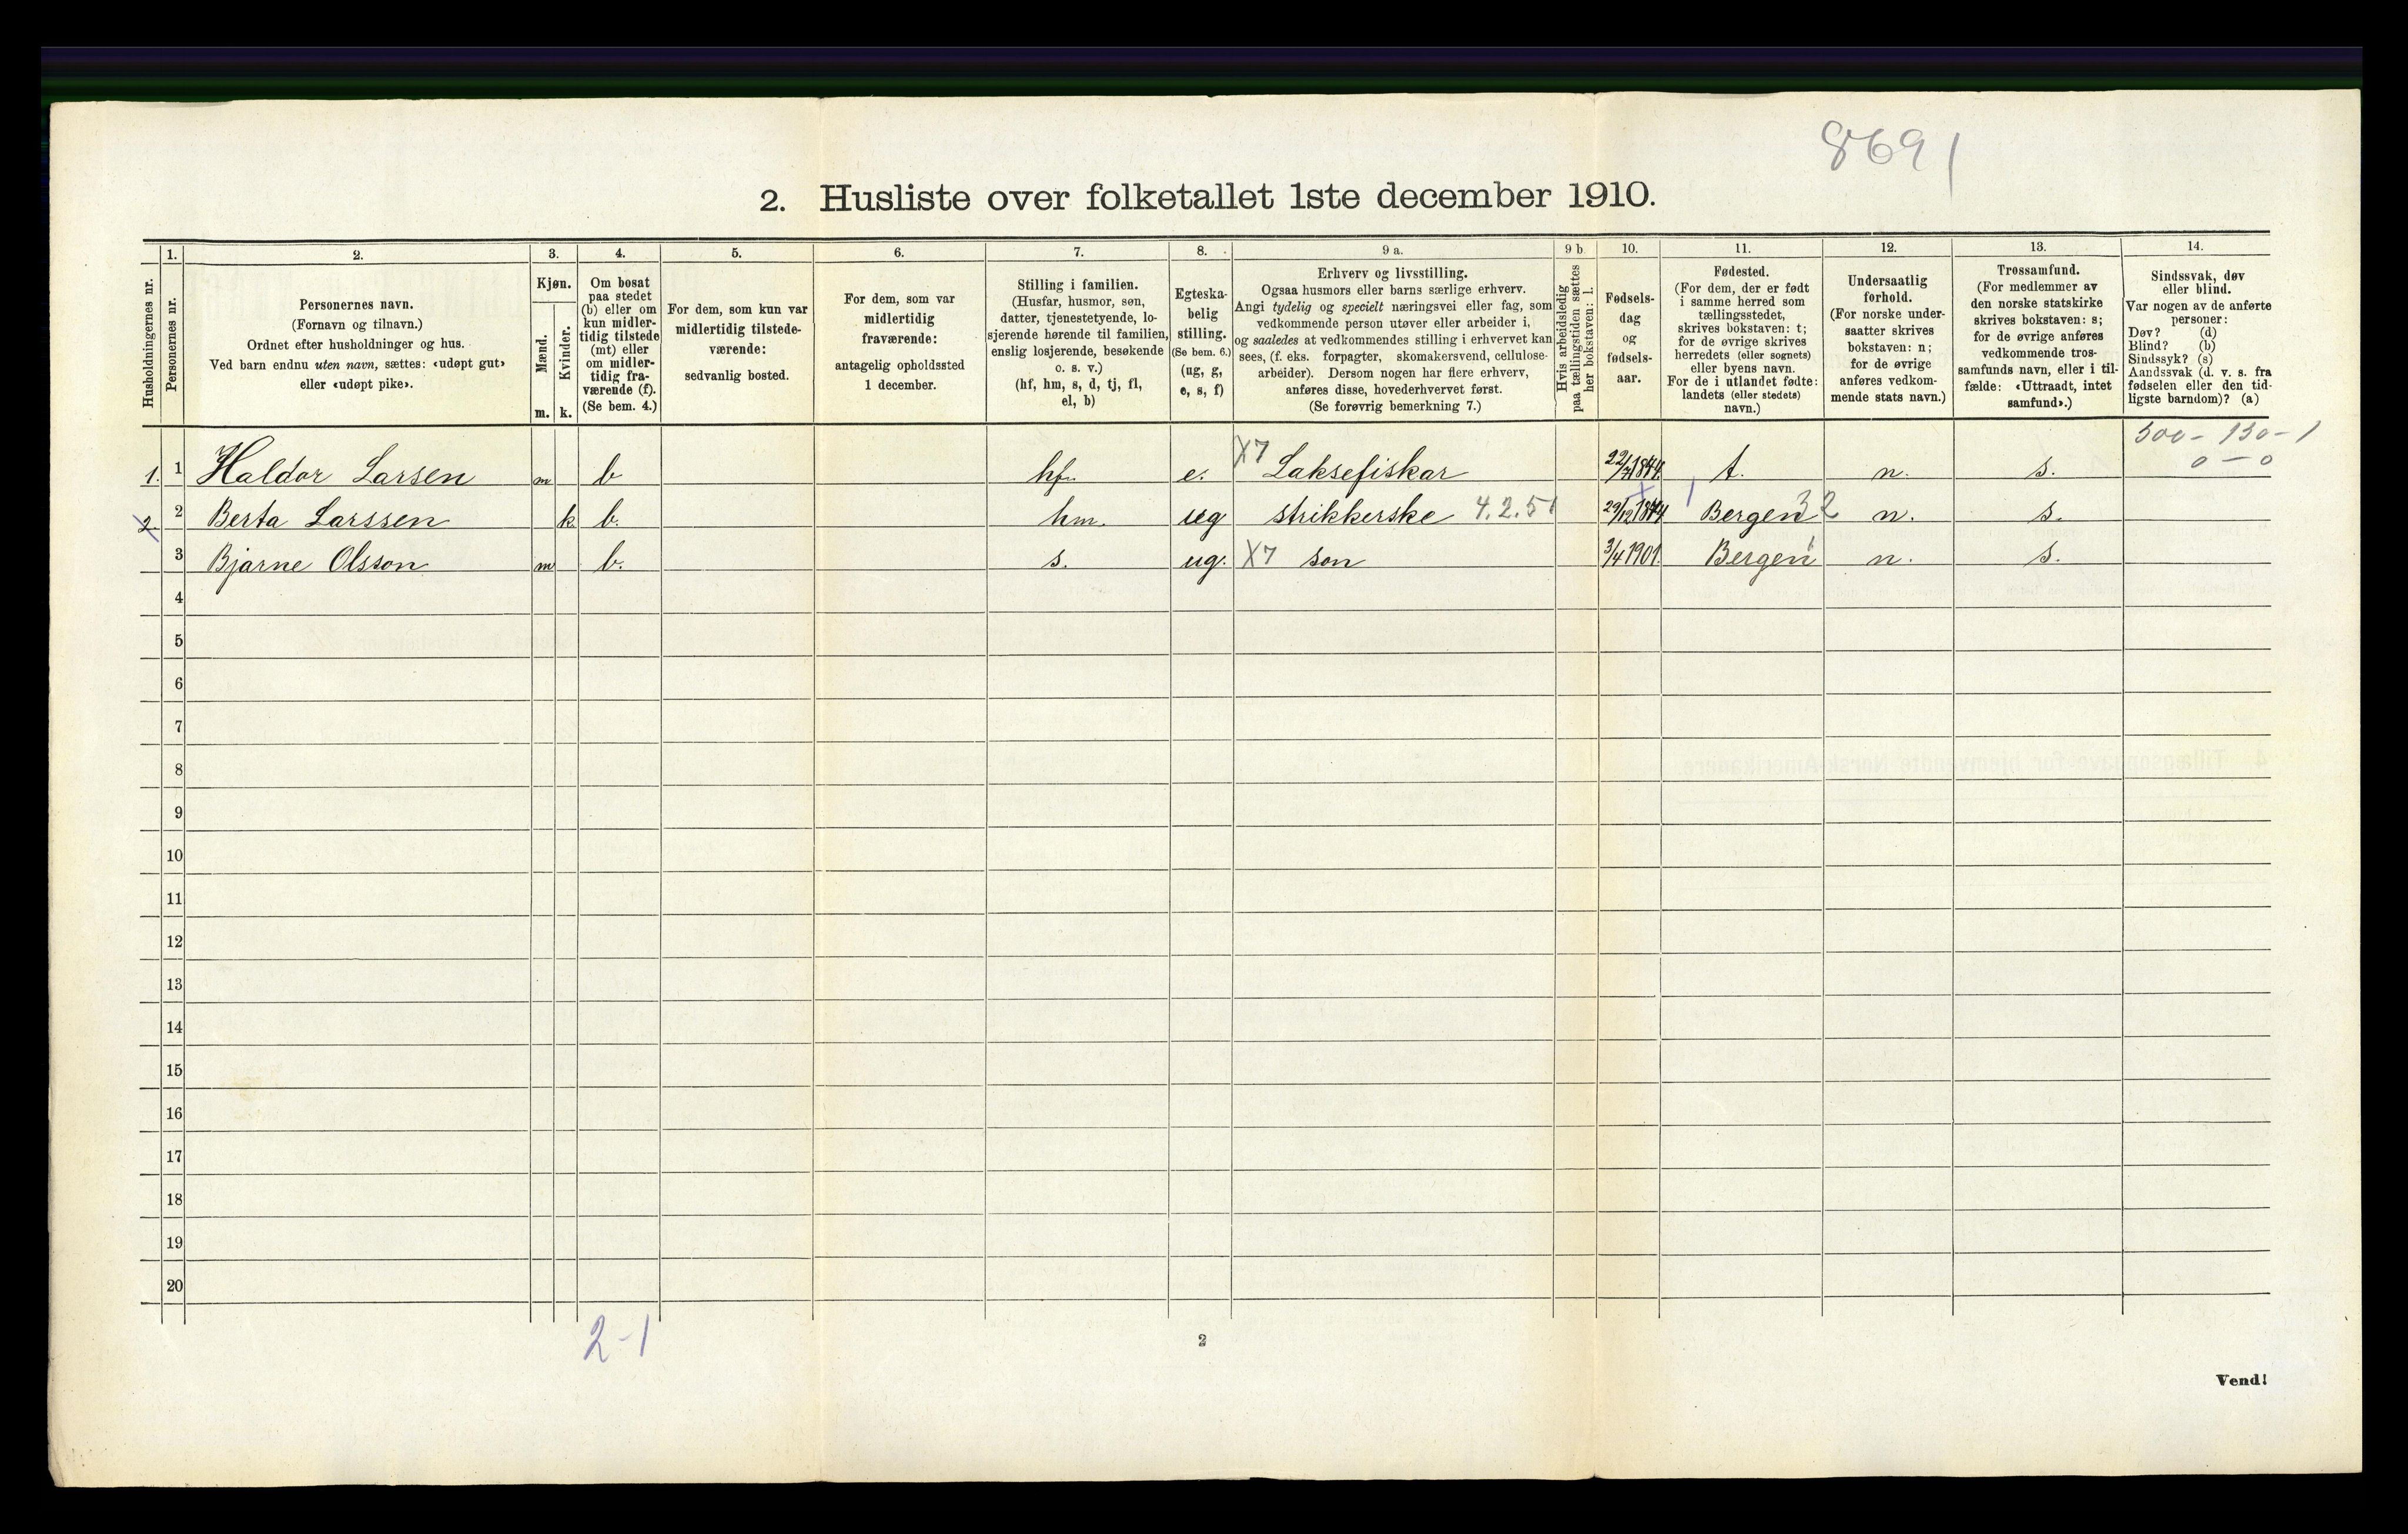 8691
2. Husliste over folketallet 1ste december 1910.
Husholdningernes nr.
1.
Personernes nr.
2.
Personernes navn.
(Fornavn og tilnavn.)
Ordnet efter husholdninger og hus.
Ved barn endnu uten navn, sættes: «udøpt gut»
eller «udøpt pike».
3.
Kjøn.
Mænd.
Kvinder.
m. k.
4.
Om bosat
paa stedet
(b) eller om
kun midler-
tidig tilstede
(mt) eller
om midler-
tidig fra-
værende (f).
(Se bem. 4.)
5.
For dem, som kun var
midlertidig tilstede-
værende:
sedvanlig bosted.
6.
For dem, som var
midlertidig
fraværende:
antagelig opholdssted
1 december.
7.
Stilling i familien.
(Husfar, husmor, søn,
datter, tjenestetyende, lo-
sjerende hørende til familien,
enslig losjerende, besøkende
o. s. v.)
(hf, hm, s, d, tj, fl,
el, b)
8.
Egteska-
belig
stilling.
(Se bem. 6.)
(ug, g,
e, s, f)
9 a.
Erhverv og livsstilling.
Ogsaa husmors eller barns særlige erhverv.
Angi tydelig og specielt næringsvei eller fag, som
vedkommende person utøver eller arbeider i,
og saaledes at vedkommendes stilling i erhvervet kan
sees, (f. eks. forpagter, skomakersvend, cellulose-
arbeider). Dersom nogen har flere erhverv,
anføres disse, hovederhvervet først.
(Se forøvrig bemerkning 7.)
9 b
Hvis arbeidsledig
paa tællingstiden sættes
her bokstaven: l.
10.
Fødsels-
dag
og
fødsels-
aar.
11.
Fødested.
(For dem, der er født
i samme herred som
tællingsstedet,
skrives bokstaven: t;
for de øvrige skrives
herredets (eller sognets)
eller byens navn.
For de i utlandet fødte:
landets (eller stedets)
navn.)
12.
Undersaatlig
forhold.
(For norske under-
saatter skrives
bokstaven: n;
for de øvrige
anføres vedkom-
mende stats navn.)
13.
Trossamfund.
(For medlemmer av
den norske statskirke
skrives bokstaven: s;
for de øvrige anføres
vedkommende tros-
samfunds navn, eller i til-
fælde: «Uttraadt, intet
samfund».)
14.
Sindssvak, døv
eller blind.
Var nogen av de anførte
personer:
Døv? (d)
Blind? (b)
Sindssyk? (s)
Aandssvak (d. v. s. fra
fødselen eller den tid-
ligste barndom)? (a)
300 - 130 - 1
0 - 0
1. 1 Haldor Larsen m b hf. e. X7 Laksefiskar t. n. s.
2. 2 Berta Larssen k b. hm. ug strikkerske 4.2.51 Bergen 32 n. s.
3 Bjarne Olsson m b. s. ug. X7 son 3/4 1901. Bergen n. s.
4
5
6
7
8
9
10
11
12
13
14
15
16
17
18
19
20
2-1
2
Vend!